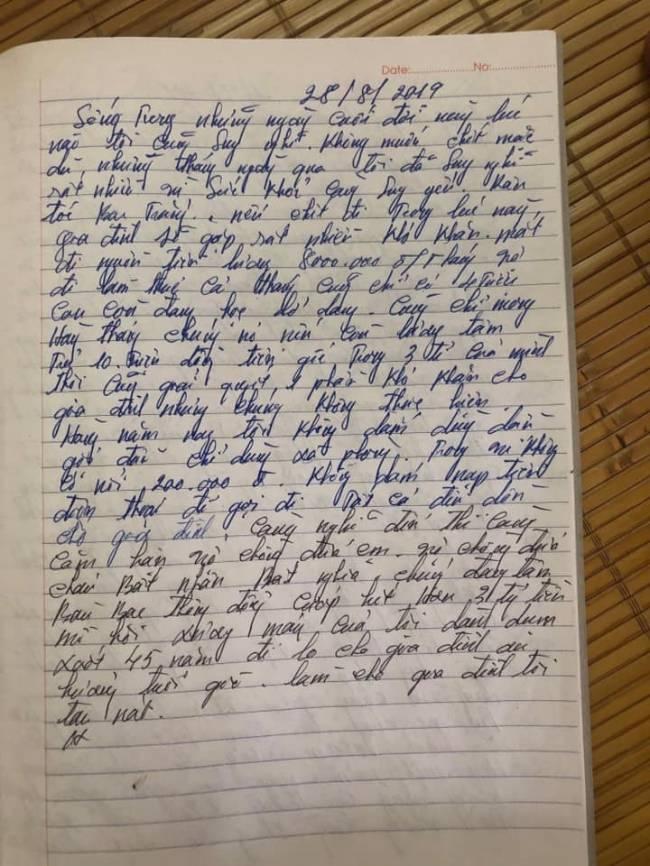 Date: No:
28/8/2019
Sống Trong những ngày cuối đời này lúc
nào tôi cũng suy nghĩ. Không muốn chết mặc
dù những tháng ngày qua tôi đã suy nghĩ
rất nhiều sức khỏe suy yếu.
tôi nếu chết đi Trong lúc này,
gia đình sẽ gặp rất nhiều khó khăn. mất
đi nguồn tiền lương 8000.000 đ/1 tháng
đi làm thuê cả tháng cũng chỉ có 4 Triệu
con còn đang học dở dang. Cũng chỉ mong
Hàng tháng chúng nó nếu còn lương tâm
Trả 10. Triệu đồng tiền gửi Trong 3 tỉ của mình
thôi cũng giải quyết 1 phần khó khăn cho
gia đình nhưng chúng không thực hiện
Hàng năm nay tôi không dám dùng dầu
gội đầu chỉ dùng xà phòng. Trong không
có nổi 200.000 đ. Không dám nạp tiền
điện thoại để gọi đi tất cả đều dồn
cho gia đình. Càng nghĩ đến thì càng
căm hận vợ chồng đứa em vợ chồng đứa
cháu Bất nhân Bất nghĩa, chúng đang tâm
cướp hết hơn 3 tỷ tiền
mồ hôi xương máu của tôi dành dụm
suốt 45 năm để lo cho gia đình
hưởng tuổi già. làm cho gia đình tôi
tan nát.